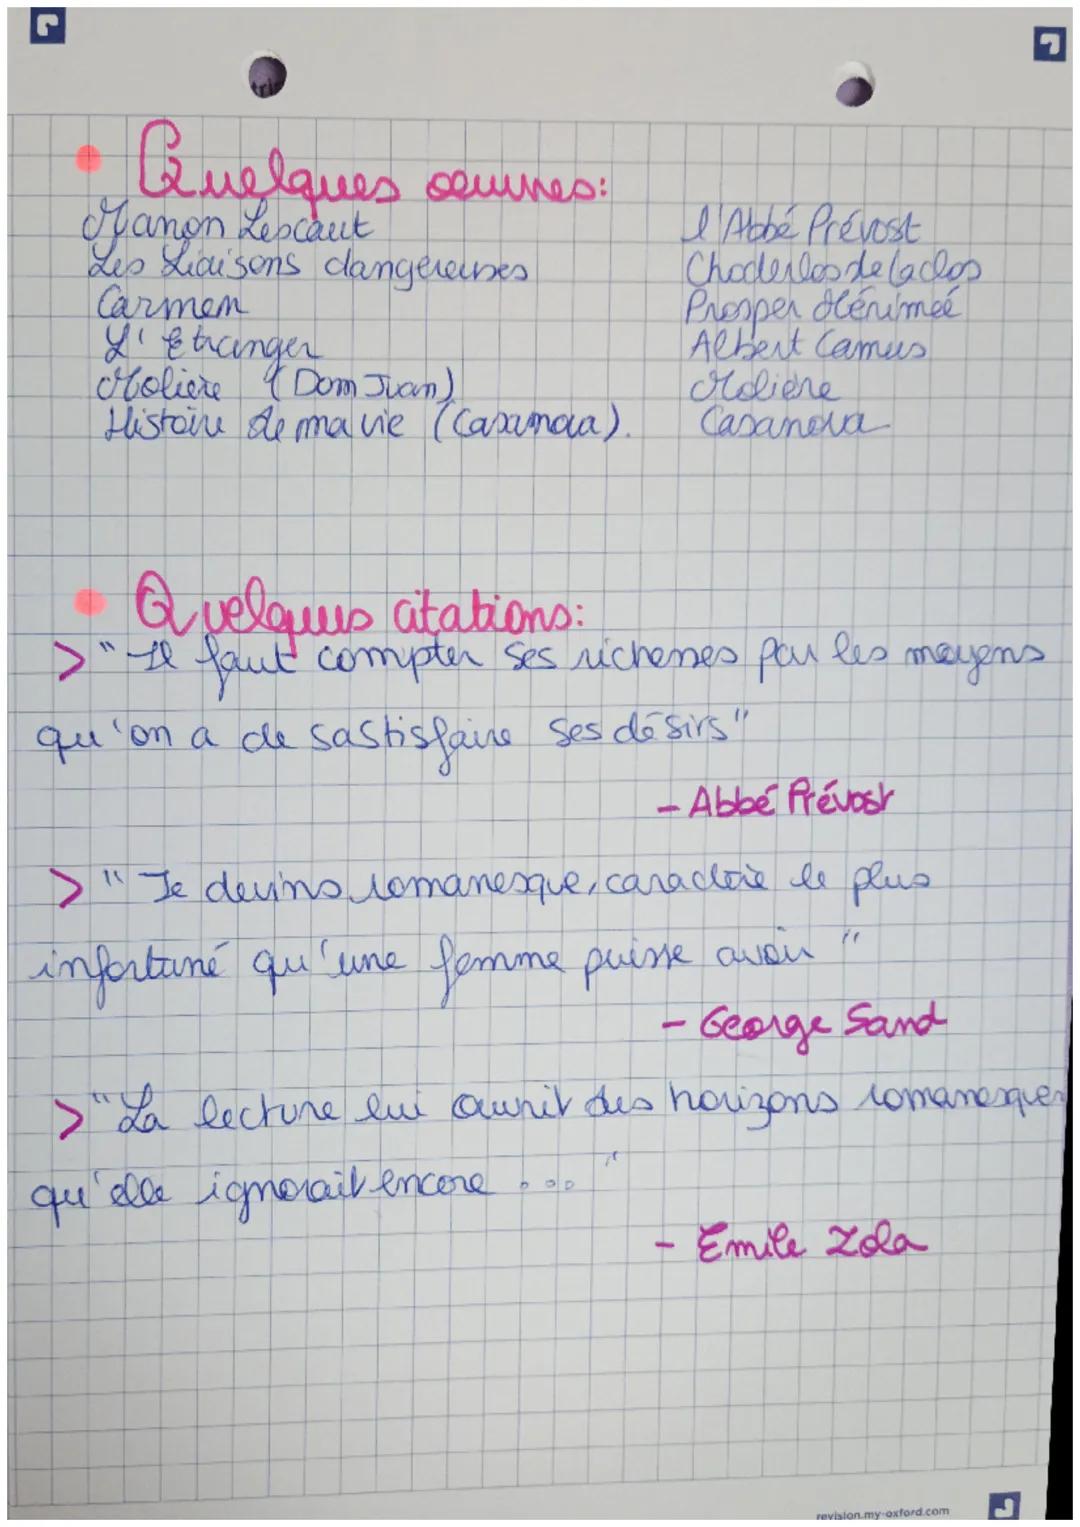 Quelques oeuvres:
Manon Lescaut l'Abbé Prévost
Les Liaisons dangereuses Choderlos de Laclos
Carmen Prosper Mérimeé
L' Etranger Albert Camus
Molière (Dom Juan) Molière
Histoire de ma vie (Casanova). Casanova
Quelques citations:
> "Il faut compter ses richesses par les moyens
qu'on a de sastisfaire ses désirs"
- Abbé Prévost
> "Je devins romanesque, caractère le plus
infortuné qu'une femme puisse avoir"
- George Sand
> "La lecture lui ouvrit des horizons romanesques
qu'elle ignorait encore ..."
- Emile Zola
revision.my-oxford.com